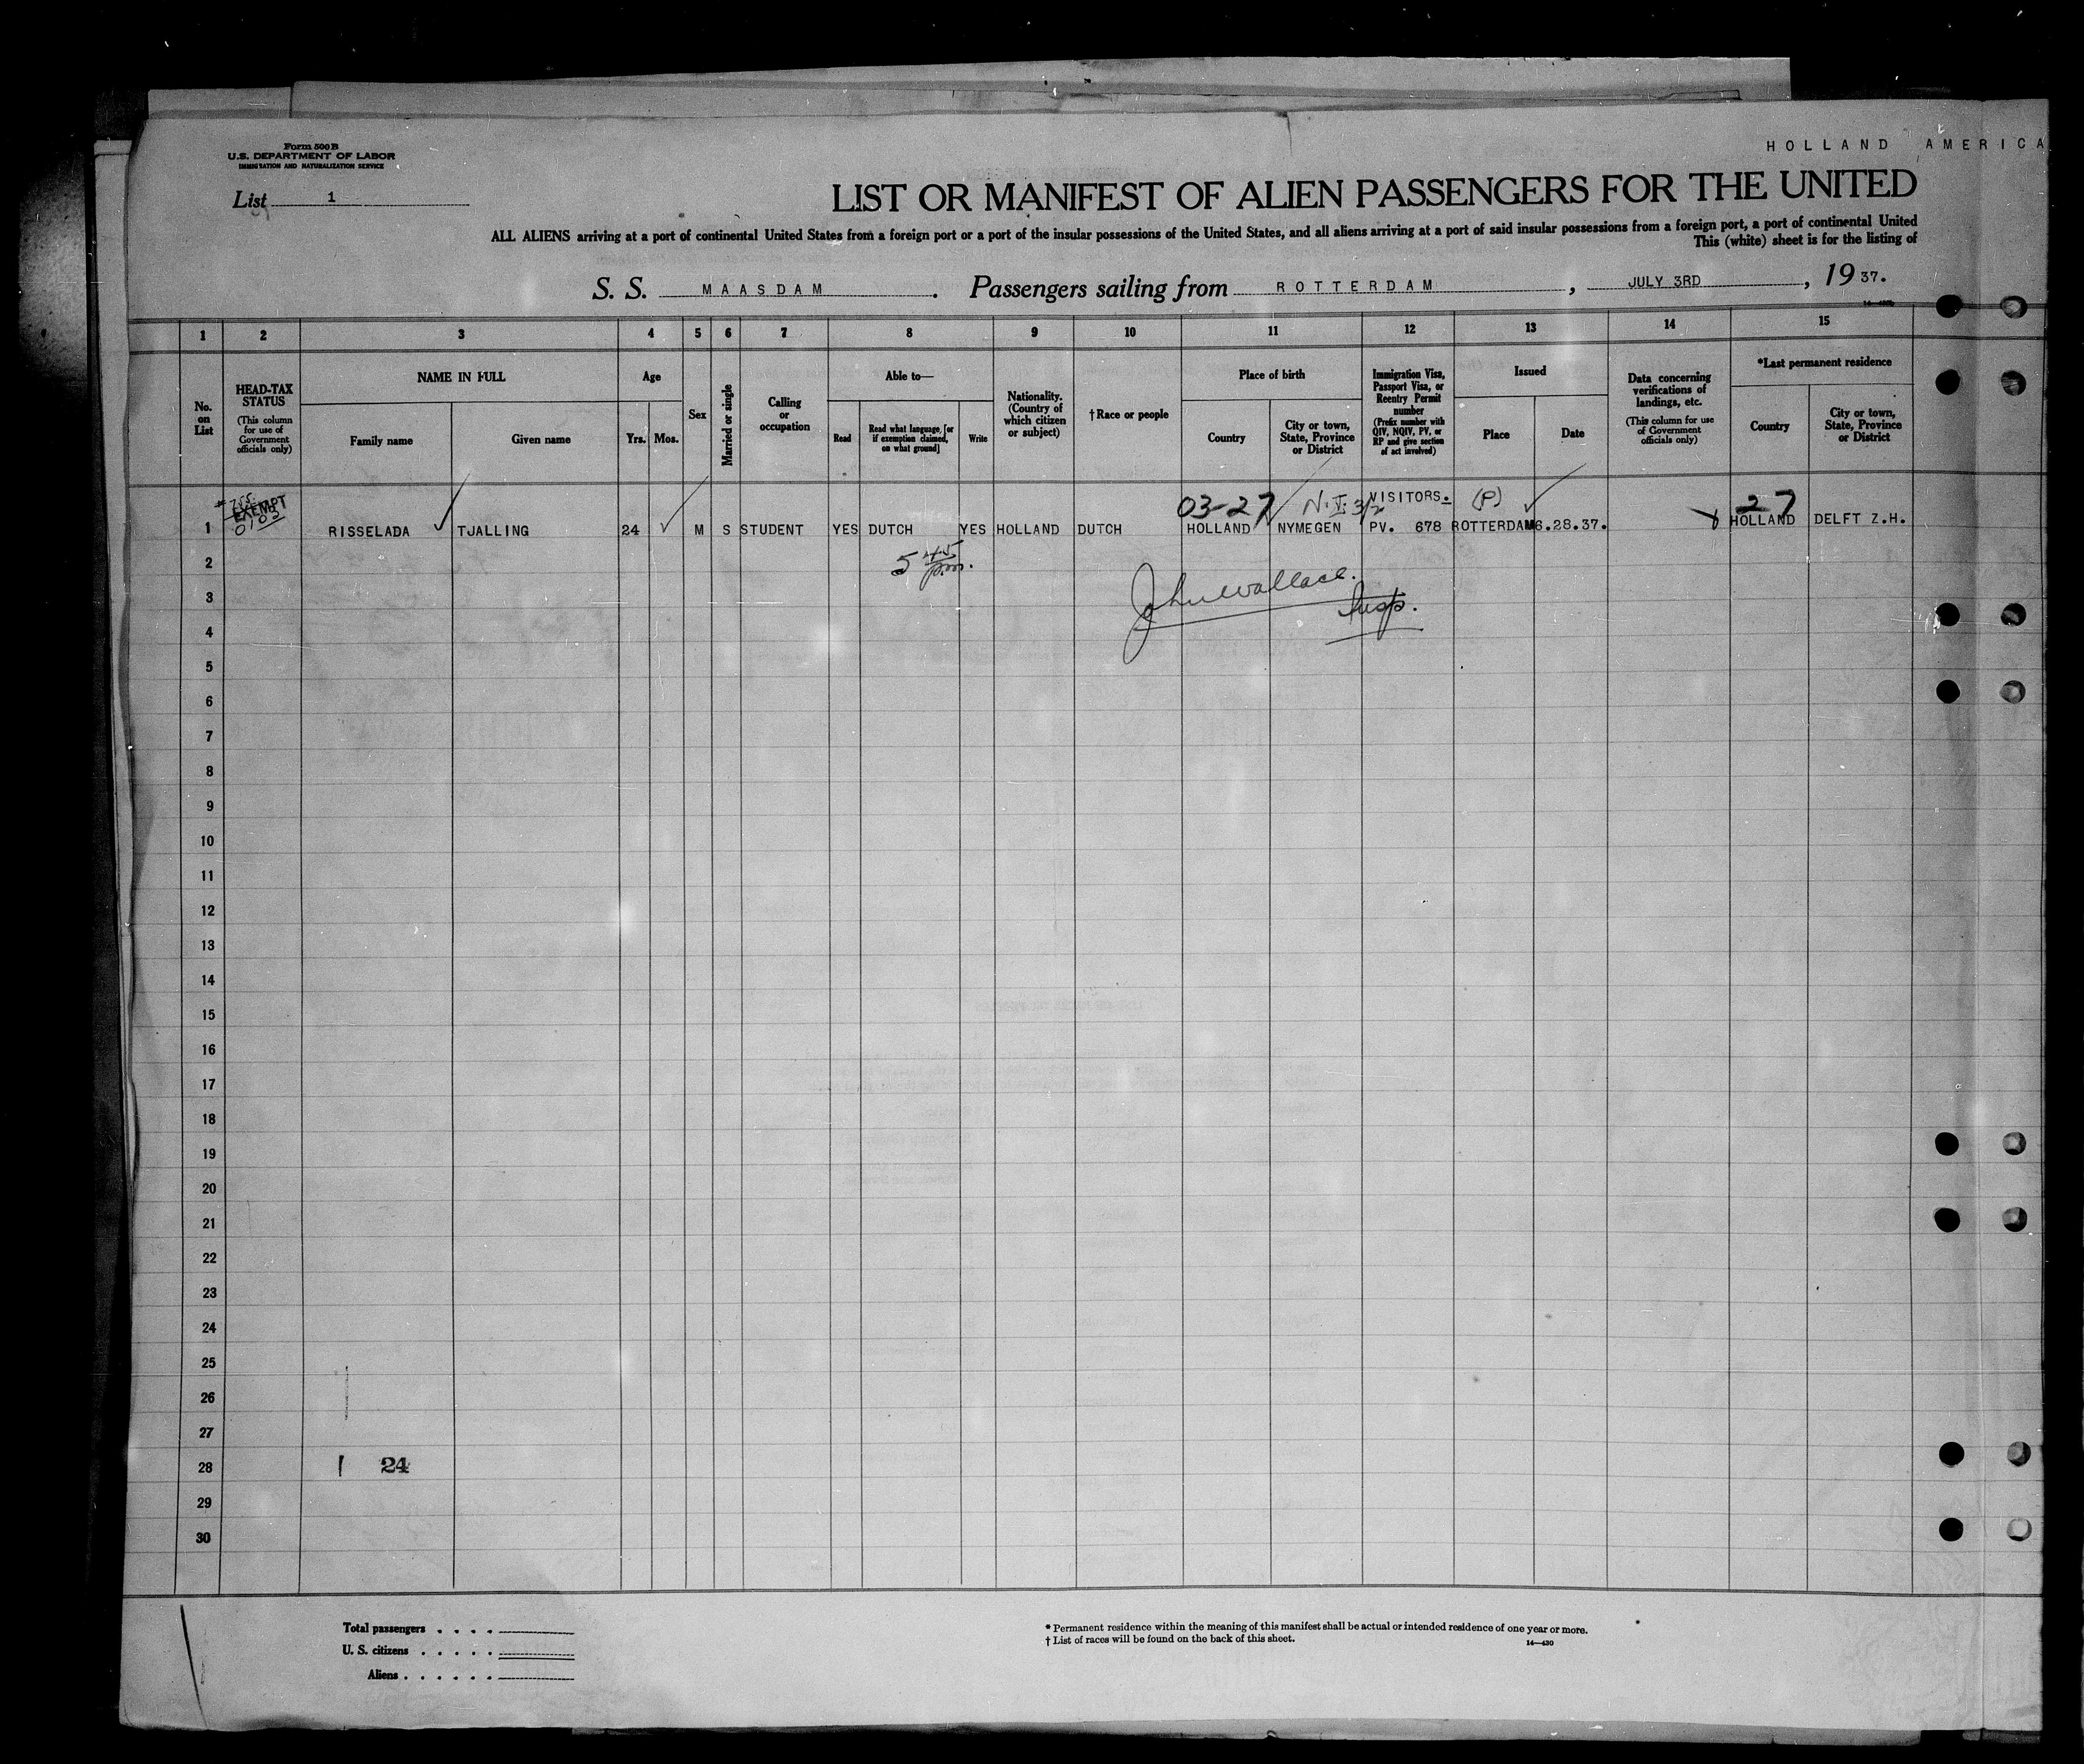 Form 500 B
U.S. DEPARTMENT OF LABOR
IMMIGRATION AND NATURALIZATION SERVICE
List 1
HOLLAND AMERICA
LIST OR MANIFEST OF ALIEN PASSENGERS FOR THE UNITED
ALL ALIENS arriving at a port of continental United States from a foreign port or a port of the insular possessions of the United States, and all aliens arriving at a port of said insular possessions from a foreign port, a port of continental United
This (white) sheet is for the listing of
S. S. MAASDAM. Passengers sailing from ROTTERDAM, JULY 3RD, 19 37.
14—430
1 2 3 4 5 6 7 8 9 10 11 12 13 14 15
No. on List
HEAD-TAX STATUS
(This column for use of Government officials only)
NAME IN FULL
Family name
Given name
Age
Yrs. Mos.
Sex
Married or single
Calling or occupation
Able to—
Read
Read what language, [or if exemption claimed, on what ground]
Write
Nationality. (Country of which citizen or subject)
† Race or people
Place of birth
Country
City or town, State, Province or District
Immigration Visa, Passport Visa, or Reentry Permit number
(Prefix number with QIV, NQIV, PV, or RP and give section of act involved)
Issued
Place
Date
Data concerning verifications of landings, etc.
(This column for use of Government officials only)
*Last permanent residence
Country
City or town, State, Province or District
EXEMPT
03-27 VISITORS. (P) 27
1 RISSELADA TJALLING 24 M S STUDENT YES DUTCH YES HOLLAND DUTCH HOLLAND NYMEGEN PV. 678 ROTTERDAM 6.28.37. HOLLAND DELFT Z.H.
5 45 p.m.
2
John Wallace.
3
Insp.
4
5
6
7
8
9
10
11
12
13
14
15
16
17
18
19
20
21
22
23
24
25
26
27
28 24
29
30
Total passengers . . . .
U. S. citizens . . . . .
Aliens . . . . . .
* Permanent residence within the meaning of this manifest shall be actual or intended residence of one year or more.
† List of races will be found on the back of this sheet.
14—430